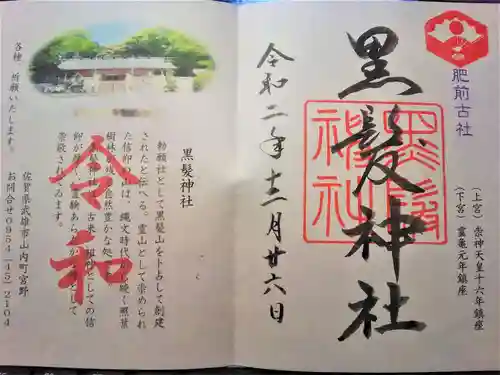 肥前古社
(上宮) 崇神天皇十六年鎮座
(下宮) 霊亀元年鎮座
黒髪神社
黒髪神社
令和二年十二月廿六日
黒髪神社
勅願社として黒髪山をト占して創建
されたと伝へる。霊山として崇められ
た信仰
山は、縄文時代
続く照葉
樹林
自然豊かな処
古来
としての信
仰が
霊験あらた
として
崇敬されてゐます。
令和
各種
祈願いたします。
佐賀県武雄市山内町宮野
お問合せ0954(45)2104